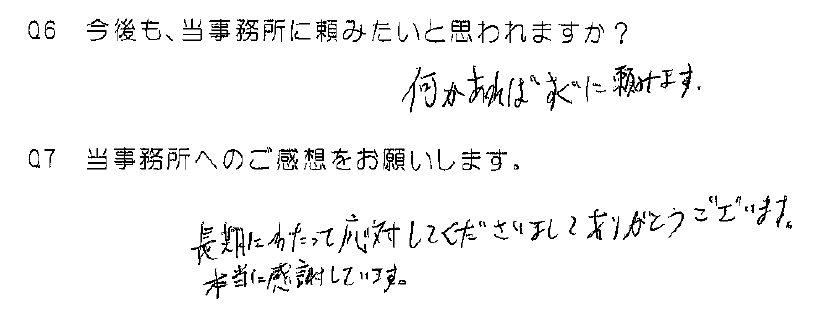 Q6 今後も、当事務所に頼みたいと思われますか？
何かあればすぐに頼みます.
Q7 当事務所へのご感想をお願いします。
長期にわたって応対してくださいましてありがとうございます。
本当に感謝しています。